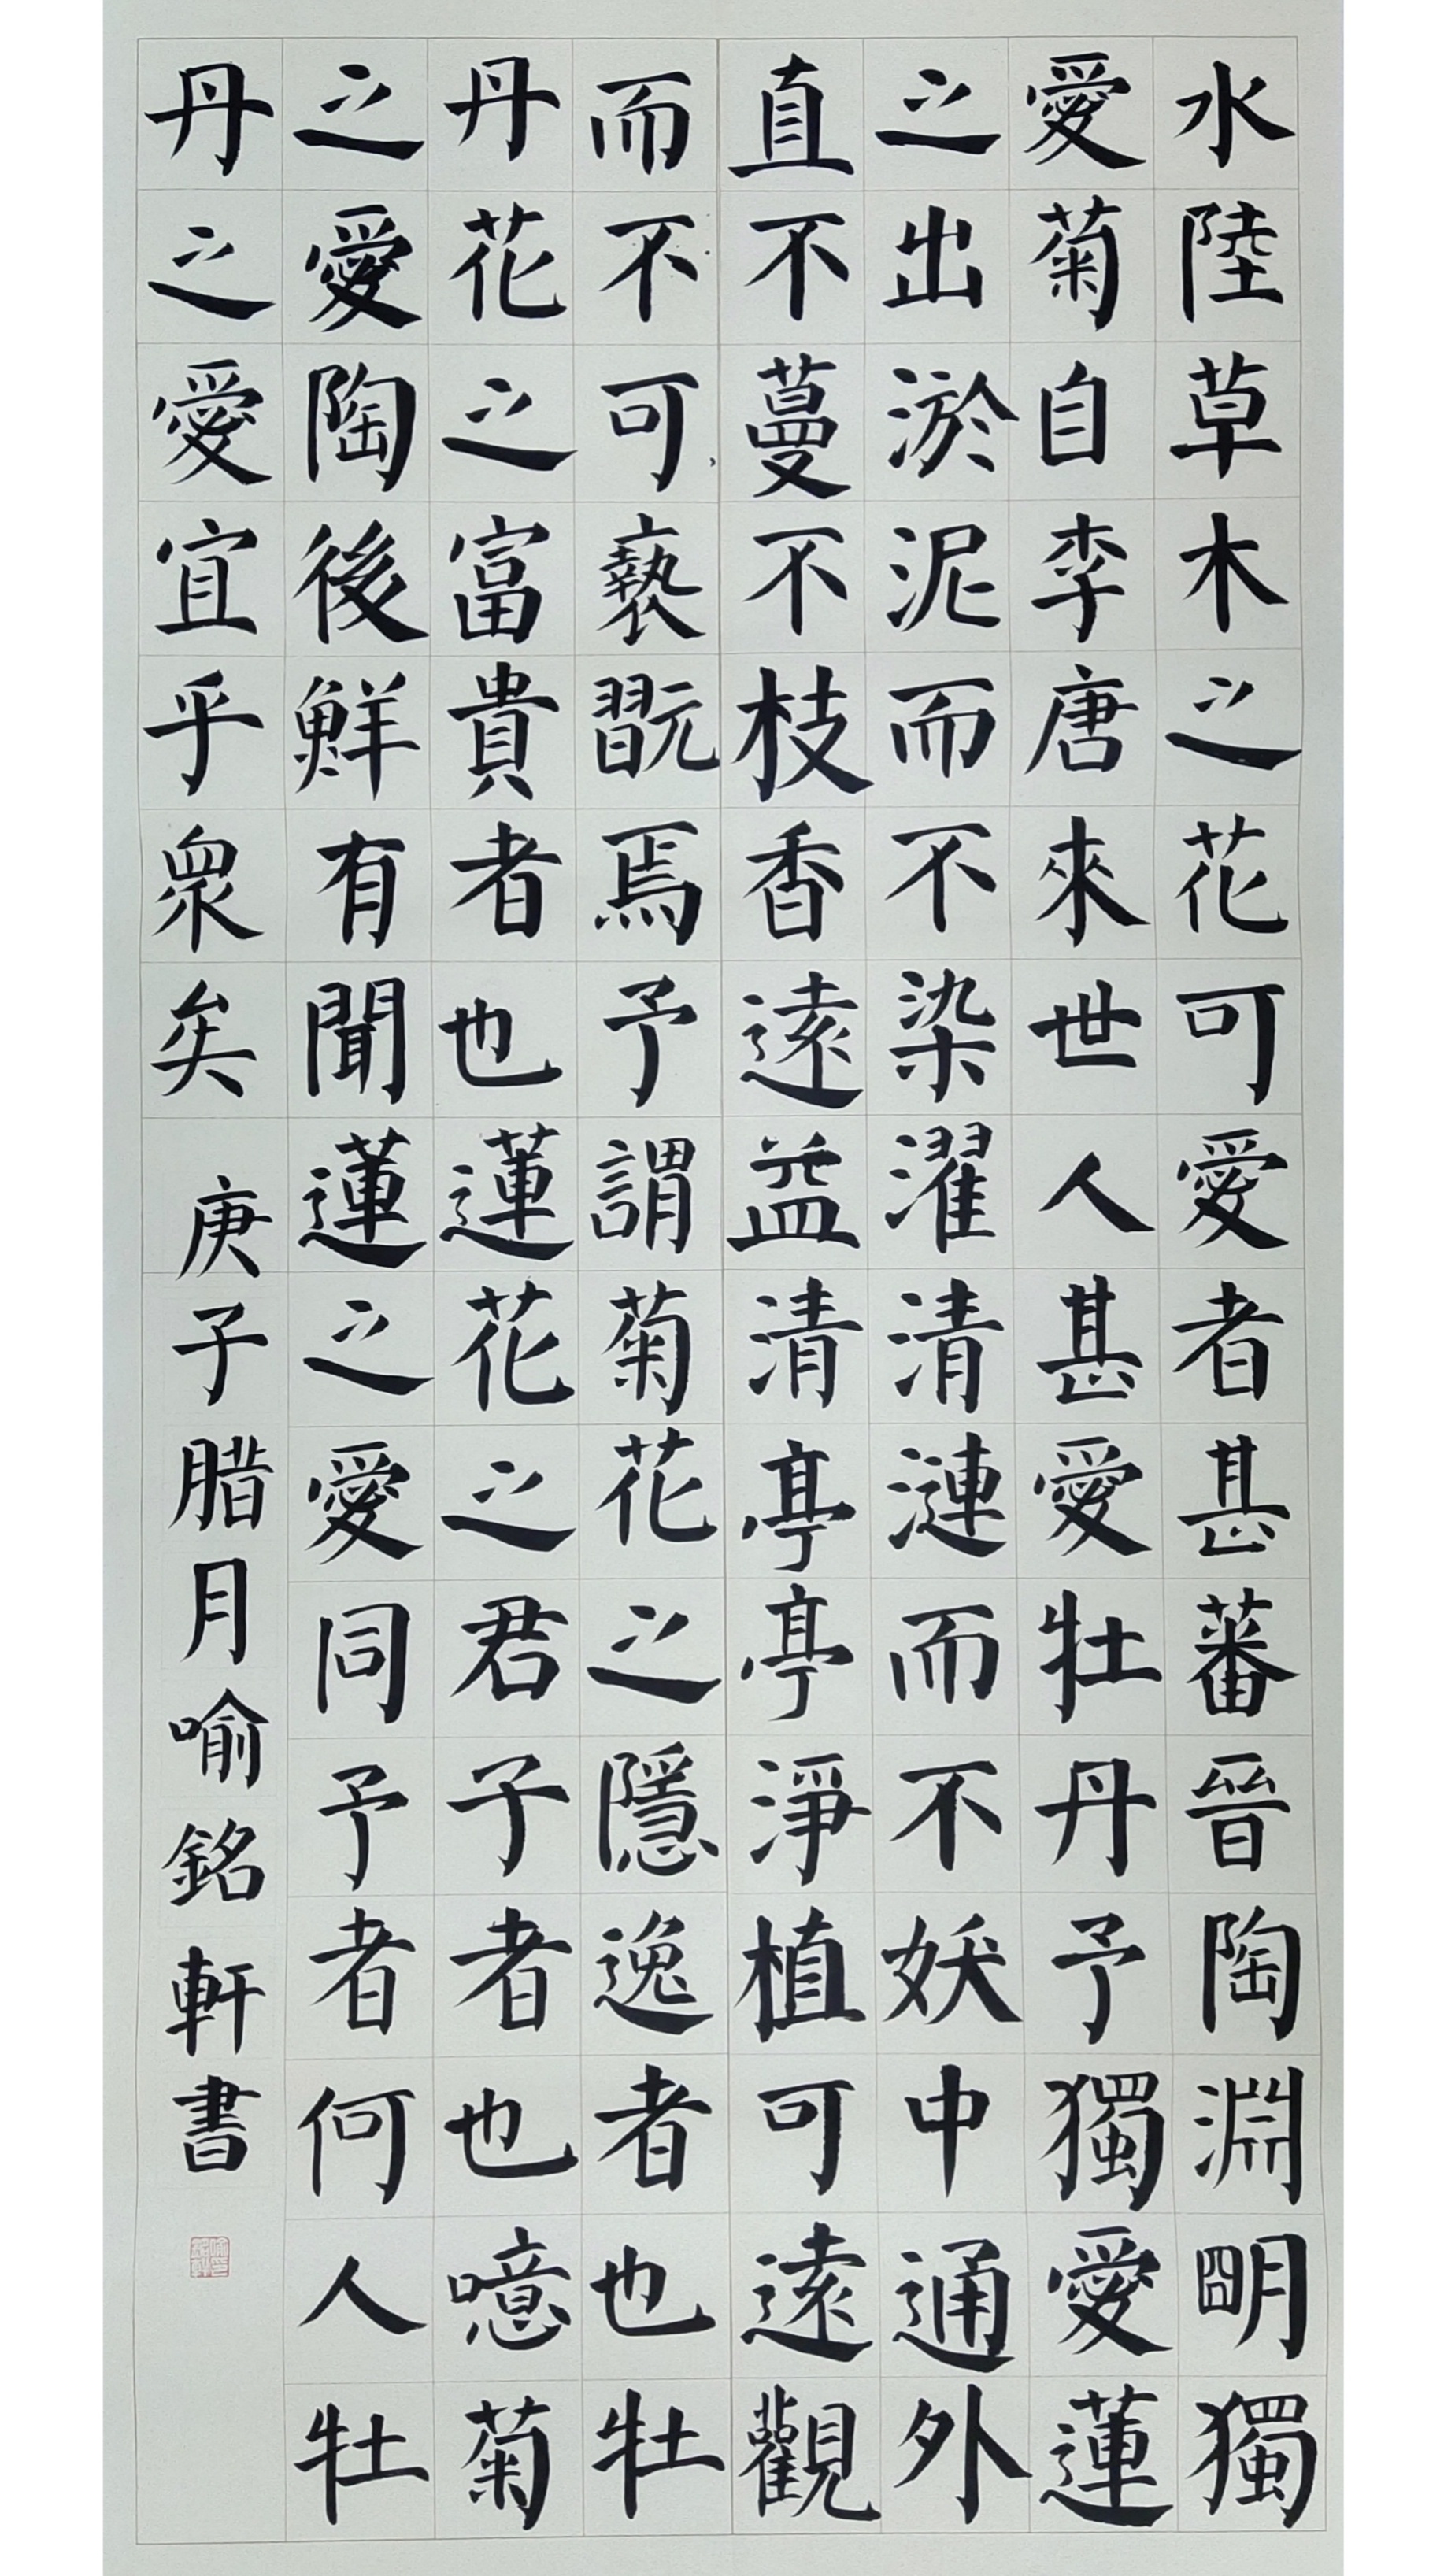 水陸草木之花可愛者甚蕃晉陶淵明獨
愛菊自李唐來世人甚愛牡丹予獨愛蓮
之出淤泥而不染濯清漣而不妖中通外
直不蔓不枝香遠益清亭亭淨植可遠觀
而不可褻翫焉予謂菊花之隱逸者也牡
丹花之富貴者也蓮花之君子者也噫菊
之愛陶後鮮有聞蓮之愛同予者何人牡
丹之愛宜乎眾矣
庚子腊月喻銘軒書